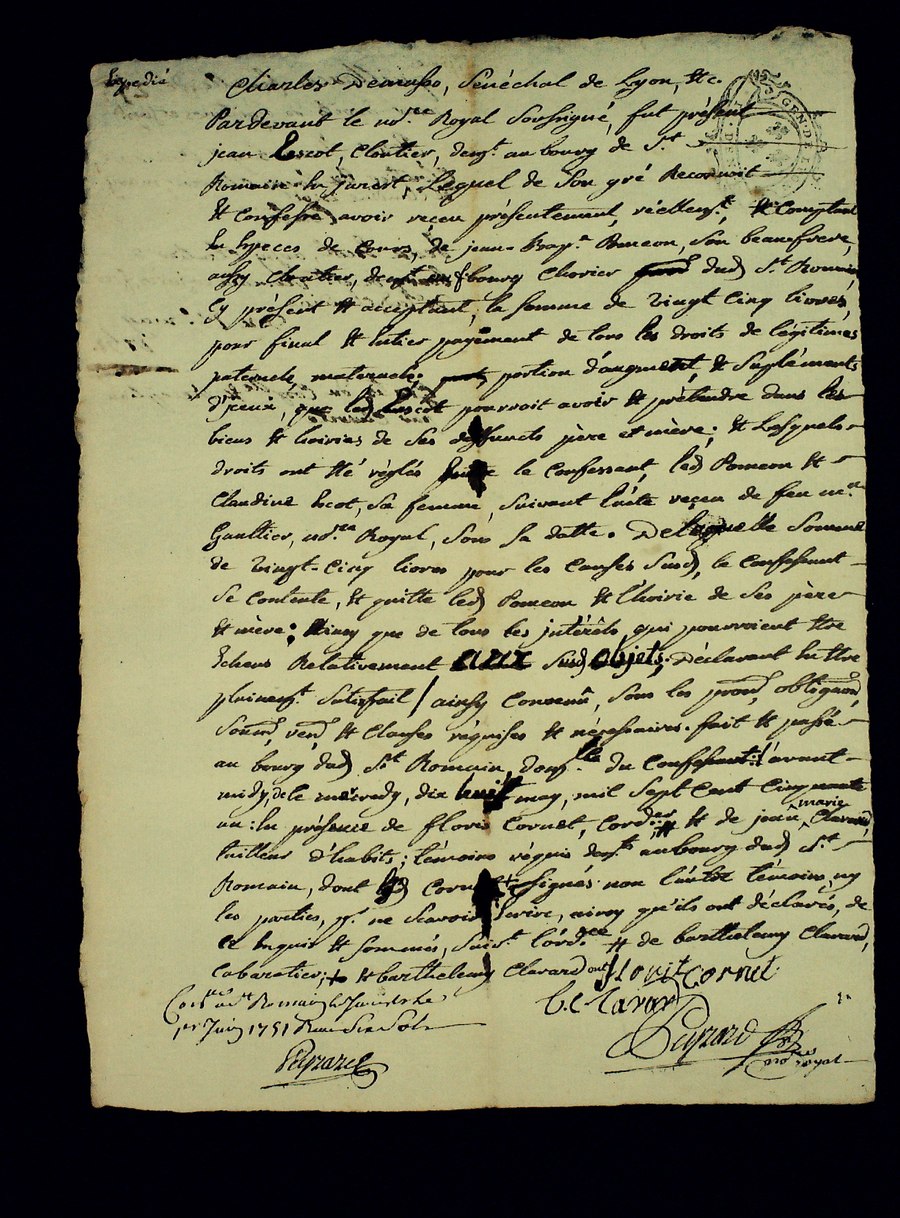 Expedié
Charles Demasso, Sénéchal de Lyon, &c.
Pardevant le no.re Royal Soussigné, fut présent
jean Escot, Cloutier, dem.t au bourg de S.t
Romain en jarest, Lequel de Son gré Reconnoit
& Confesse avoir receu présentement, réellem.t, & Comptant
En Especes de Cours, de jean Bap.e Ponceon, Son beaufrere,
aussy Cloutier, dem.t bourg dud S.t Romain
Cy présent & acceptant, la Somme de vingt Cinq livres,
pour final & Entier payement de tous les droits de légitimes
paternels, maternels, portion d'augment, & Supléments
d'yceux, que led Escot pourroit avoir & prétendre dans les
biens & hoiries de Ses deffuncts père et mère; & Lesquels
droits ont été réglés le Confessant, led Ponceon &
Claudine Escot, Sa femme, Suivant l'acte reçeu de feu m.e
Gaultier, no.re Royal, Sous Sa datte. De laquelle Somme
de vingt-Cinq livres pour les Causes Susd, le Confessant
Se Contente, & quitte led Ponceon & l'hoirie de Ses père
& mère; Ainsy que de tous les intérêts, qui pourroient être
Echeus Relativement aux Susd objets; Déclarant En être
pleinem.t Satisfait / ainsy Convenu, Sous les prom, obligaons,
Soum, ren & Clauses réquises & nécessaires. fait & passé
au bourg dud S.t Romain, dom.lle du Confessant: l'avant
midy, de le mécredy, dix huit may, mil Sept Cent Cinquante
un: En présence de floris Cornet, Cord.er # & de jean marie Clavard,
tailleur d'habits; témoins réquis dem.ts au bourg dud S.t
Romain, dont led Cornet signés non l'autre témoins, ny
les parties, p.r ne Scavoir Ecrire, ainsy qu'ils ont déclarés, de
ce Enquis & Sommés, Suiv.t l'ord.ce # de barthelemy Clavard,
Cabaretier; + & barthelemy Clavard ont
flouit Cornet
b. Clavard
a S.t Romain En Jarest le
1er Juin 1751
Peyrard
Peyrard
no.re royal